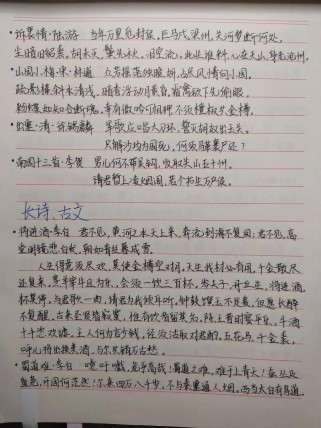 ·诉衷情·陆游 当年万里觅封侯，匹马戍梁州，关河梦断何处，
尘暗旧貂裘。胡未灭，鬓先秋，泪空流。此生谁料，心在天山，身老沧州。
·山园小梅·宋·林逋 众芳摇落独暄妍，占尽风情向小园。
疏影横斜水清浅，暗香浮动月黄昏。霜禽欲下先偷眼，
粉蝶如知合断魂，幸有微吟可相狎，不须檀板共金樽。
·出塞·清·徐锡麟 军歌应唱大刀环，誓灭胡奴出玉关。
只解沙场为国死，何须马革裹尸还？
·南园十三首·李贺 男儿何不带吴钩，收取关山五十州。
请君暂上凌烟阁，若个书生万户侯。
长诗、古文
·将进酒·李白 君不见，黄河之水天上来，奔流到海不复回；君不见，高
堂明镜悲白发，朝如青丝暮成雪。
人生得意须尽欢，莫使金樽空对月，天生我材必有用，千金散尽
还复来。烹羊宰牛且为乐，会须一饮三百杯。岑夫子，丹丘生，将进酒
杯莫停。与君歌一曲，请君为我倾耳听。钟鼓馔玉不足贵，但愿长醉
不复醒。古来圣贤皆寂寞，惟有饮者留其名。陈王昔时宴平乐，斗酒
十千恣欢谑。主人何为言少钱，径须沽取对君酌。五花马，千金裘，
呼儿将出换美酒，与尔同销万古愁。
·蜀道难·李白 噫吁嚱，危乎高哉！蜀道之难，难于上青天！蚕丛及
鱼凫，开国何茫然！尔来四万八千岁，不与秦塞通人烟。西当太白有鸟道，